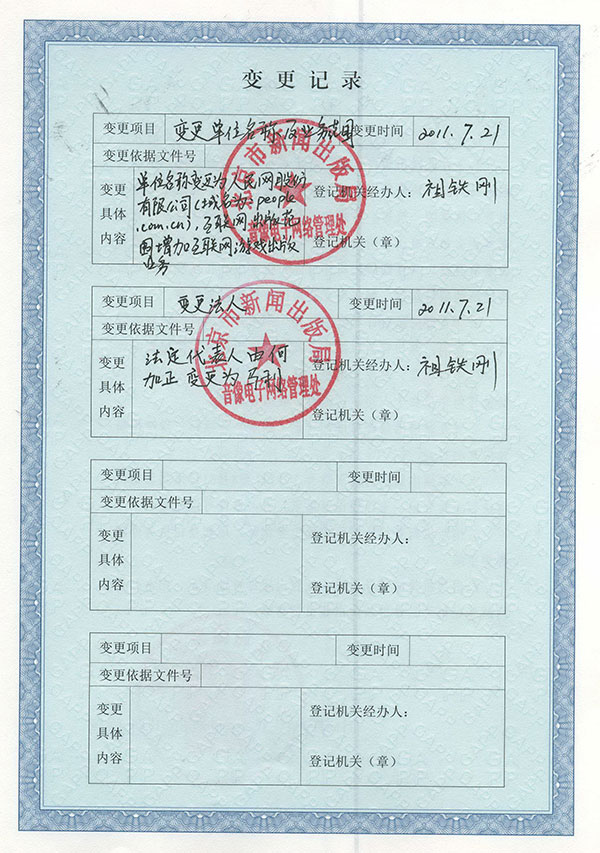 变更记录
变更项目 变更单位名称及业务范围 变更时间 2011.7.21
变更依据文件号
变更具体内容 单位名称变更为人民网股份
有限公司(域名为:people
.com.cn),互联网出版范
围增加互联网游戏出版
业务
登记机关经办人：祖铁刚
登记机关（章）
北京市新闻出版局
音像电子网络管理处
变更项目 变更法人 变更时间 2011.7.21
变更依据文件号
变更具体内容 法定代表人由何
加正变更为马利
登记机关经办人：祖铁刚
登记机关（章）
北京市新闻出版局
音像电子网络管理处
变更项目 变更时间
变更依据文件号
变更具体内容
登记机关经办人：
登记机关（章）
变更项目 变更时间
变更依据文件号
变更具体内容
登记机关经办人：
登记机关（章）